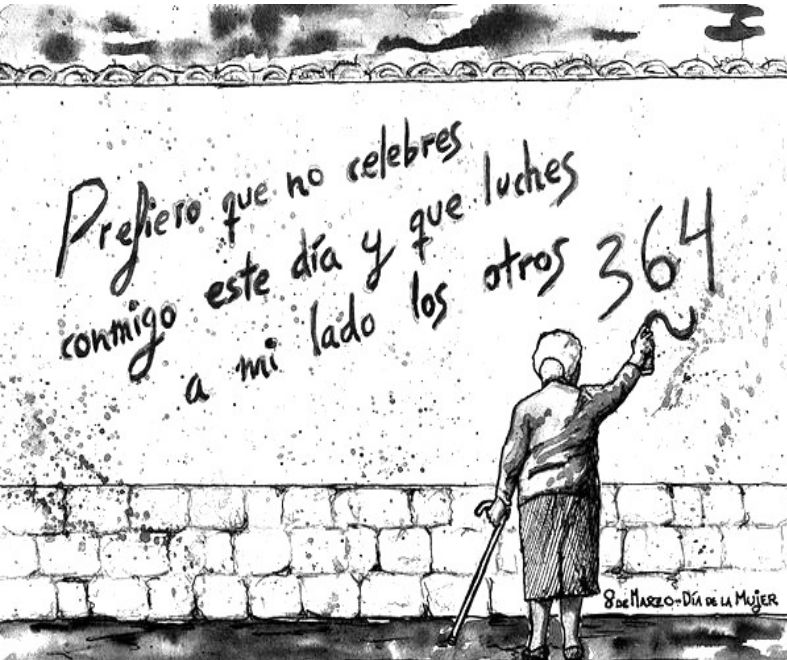 Prefiero que no celebres
conmigo este día y que luches
a mi lado los otros 364
8 DE MARZO-DÍA DE LA MUJER